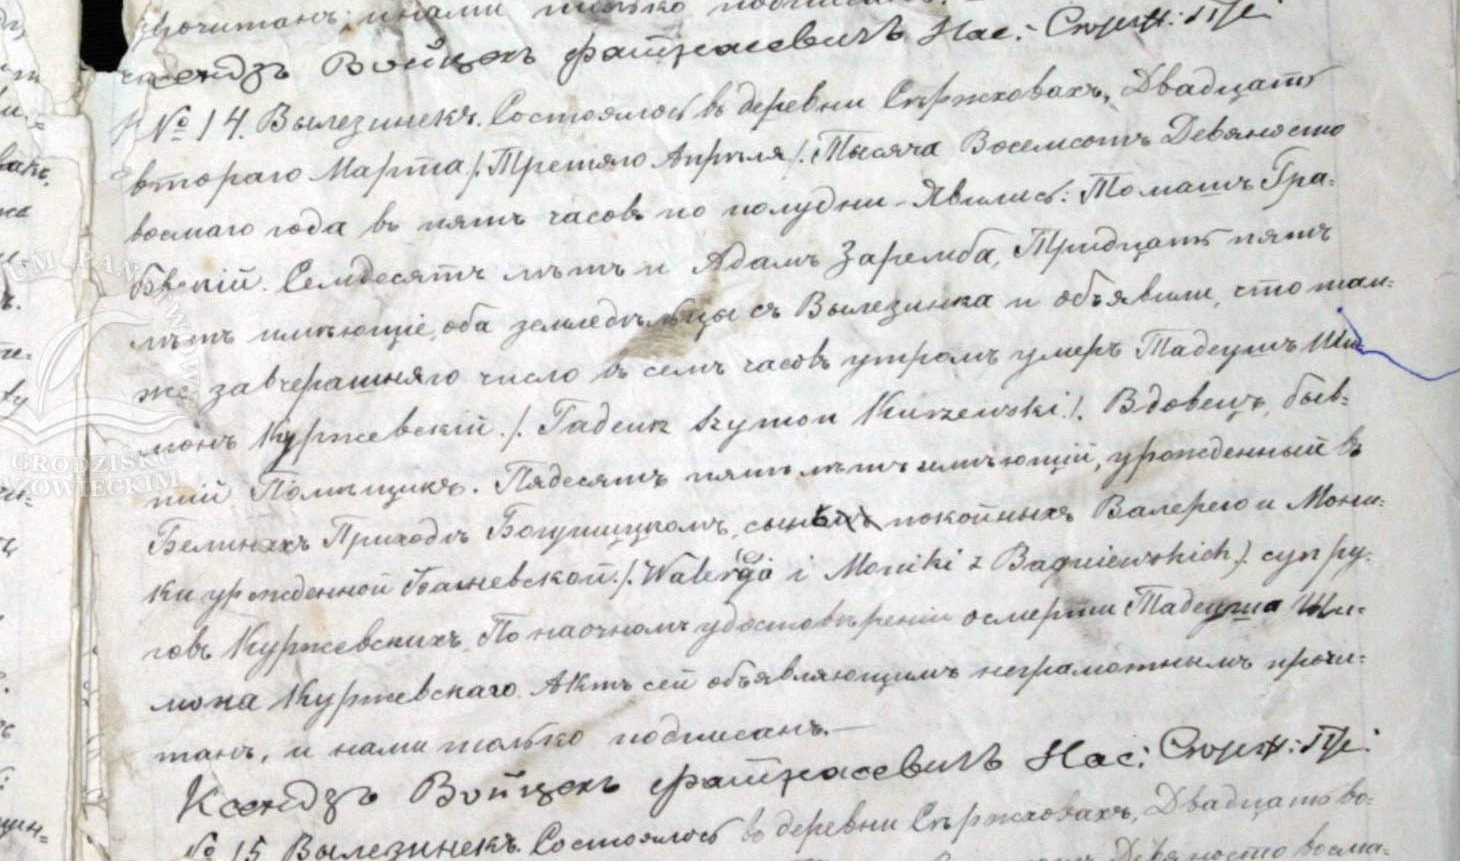 прочитанъ; и нами только подписанъ.
Ксендзъ Войцехъ Фатрасевичъ Нас: Скржт: Пр:
№ 14. Вылезинекъ. Состоялось въ деревни Сържховахъ, Двадцать
втораго Марта /: Третяго Апръля /: Тысяча Восемсотъ Девяносто
восмаго года въ пять часовъ по полудни - Явились: Томашъ Гра-
бскій. Семдесятъ лътъ и Адамъ Заремба, Тридцать пять
лътъ имъющіе, оба земледъльцы съ Вылезинка и объявили, что так-
же завчерашняго число въ семъ часовъ утромъ умеръ Тадеушъ Ши-
монъ Куржевскій. /. Tadeusz Szymon Kurzewski /. Вдовецъ, быв-
шій Помъщикъ. Пядесятъ пять лътъ имъющій, урожденный въ
Белинахъ Приходъ сынъ покойныхъ Валерего и Мони-
ки урожденной Багневской. /. Walerego i Moniki z Bagniewskich /. супру-
говъ Куржевскихъ. По наочномъ удостовъреніи о смерти Тадеуша Ши-
мона Куржевскаго. Актъ сей объявляющимъ неграмотнымъ прочи-
танъ, и нами только подписанъ. -
Ксендзъ Войцехъ Фатрасевичъ Нас: Скржт: Пр:
№ 15 Вылезинекъ. Состоялось въ деревни Сържховахъ, Двадцать во-
Девяносто восма-
GRODZISK
MAZOWIECKIM